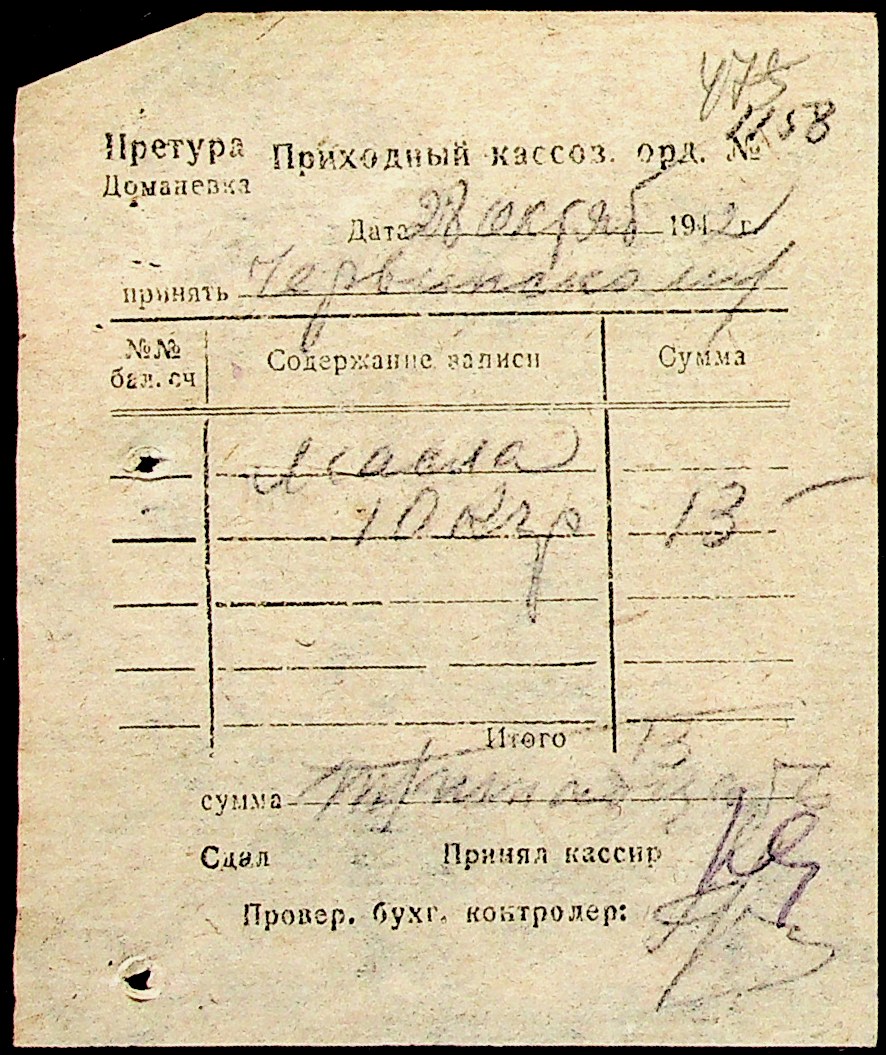 475
1158
Претура Приходный кассоз. орд. №
Доманевка
Дата 28 октяб 1942 г.
принять Червинскому
№№ бал. сч Содержание записи Сумма
Масла
10 кгр 13 —
Итого 13
сумма Тринадцать
Сдал Принял кассир
Провер. бухг. контролер: